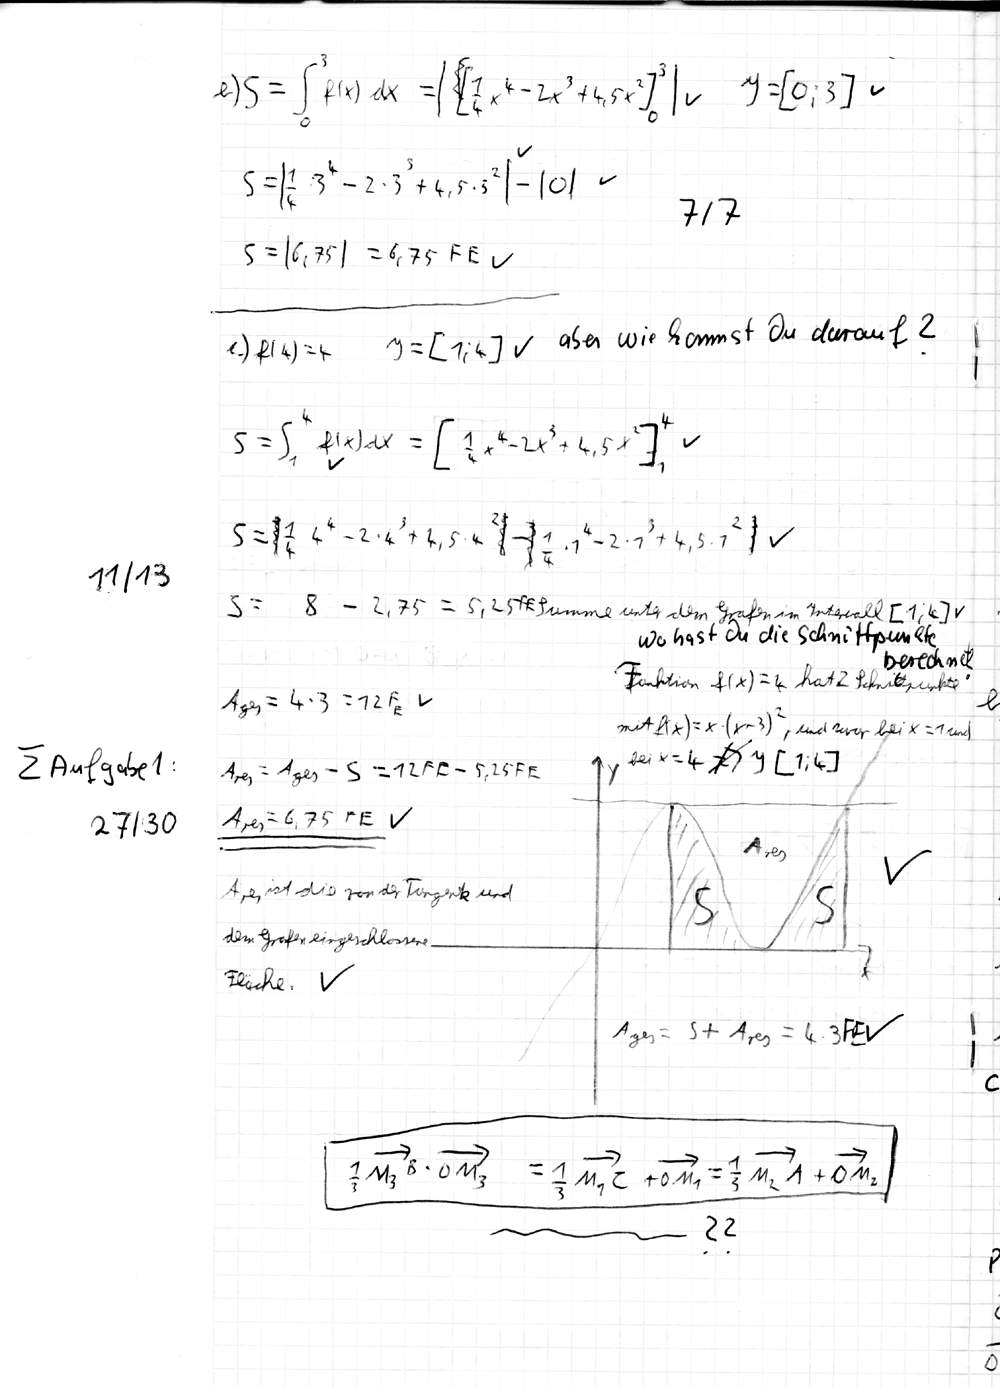 e.) S = ∫₀³ f(x) dx = |[1/4 x⁴ - 2x³ + 4,5x²]₀³| ✓ y = [0;3] ✓
S = |1/4 · 3⁴ - 2·3³ + 4,5·3²| - |0| ✓
7/7
S = |6,75| = 6,75 FE ✓
e.) f(4) = 4 y = [1;4] ✓ aber wie kommst Du darauf?
S = ∫₁⁴ f(x) dx = [1/4 x⁴ - 2x³ + 4,5x²]₁⁴ ✓
S = {1/4 4⁴ - 2·4³ + 4,5·4²} - {1/4 · 1⁴ - 2·1³ + 4,5·1²} ✓
11/13
S = 8 - 2,75 = 5,25 FE Summe unter dem Grafen im Intervall [1;4] ✓
wo hast Du die Schnittpunkte
berechnet
Funktion f(x) = 4 hat 2 Schnittpunkte
A ges = 4·3 = 12 FE ✓
mit f(x) = x·(x-3)², und zwar bei x = 1 und
bei x = 4 y [1;4]
Σ Aufgabe 1:
A res = A ges - S = 12 FE - 5,25 FE
27/30
A res = 6,75 FE ✓
y
A res
S S
x
A res ist die von der Tangente und
dem Grafen eingeschlossene
Fläche. ✓
A ges = S + A res = 4·3 FE ✓
1/3 M₃B · 0M₃ = 1/3 M₁C + 0M₁ = 1/3 M₂A + 0M₂
??